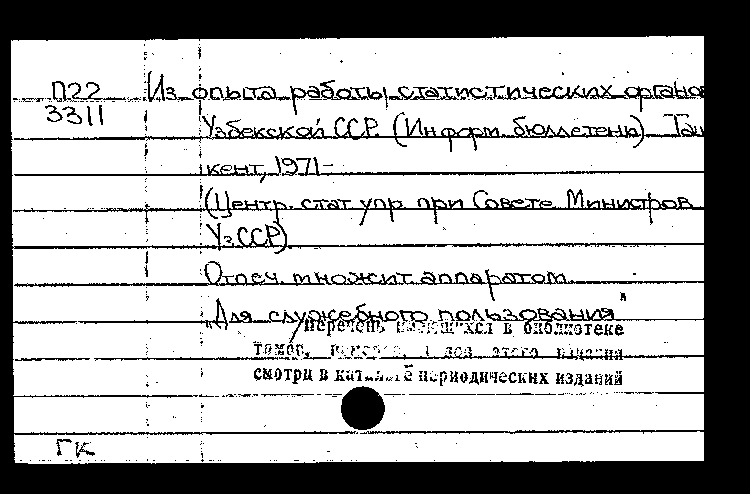 П22 Из опыта работы статистических органо
3311
Узбекской ССР. (Информ. бюллетень). Таш
кент, 1971-
(Центр. стат. упр. при Совете Министров
УзССР).
Отпеч. множит. аппаратом.
"Для служебного пользования"
перечень имеющихся в библиотеке
томов, номеров, лет этого издания
смотри в каталоге периодических изданий
ГК